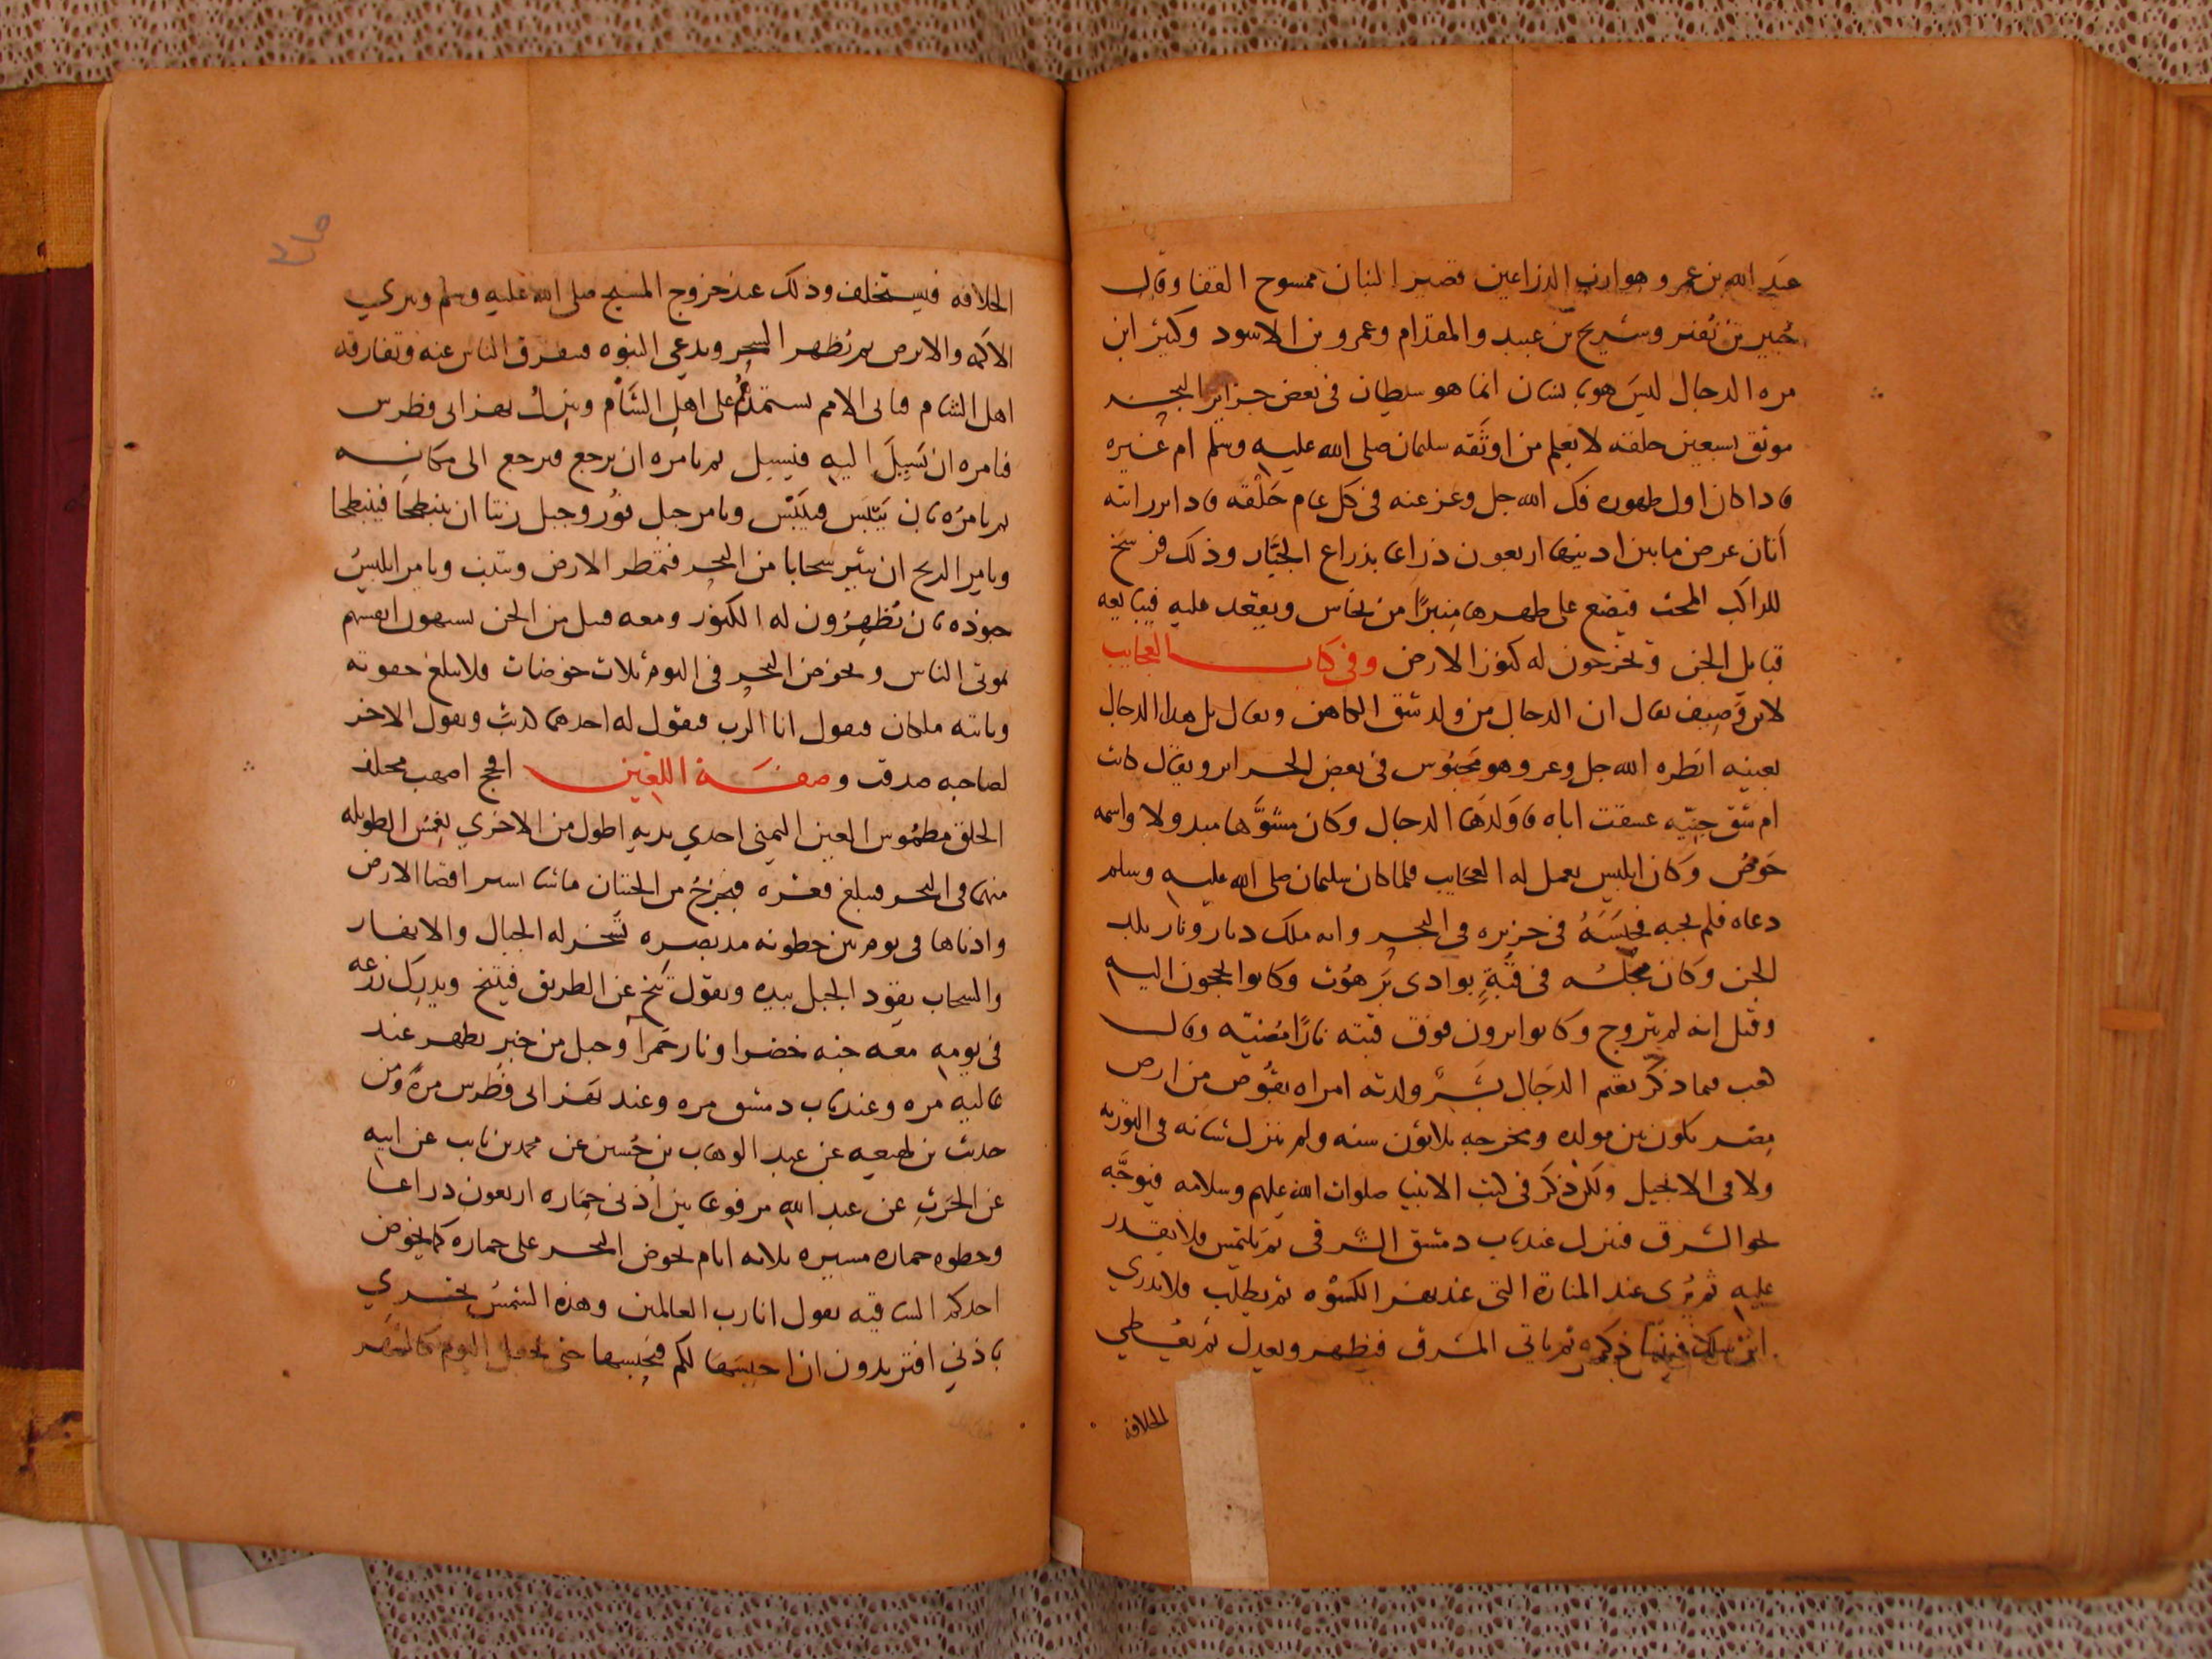 عبد الله بن عمرو هو ازب الذراعين قصير البنان ممسوح القفا وقال
جبير بن نفير وشريح بن عبيد والمقدام وعمرو بن الاسود وكثير ابن
مره الدجال ليس هو بانسان انما هو سلطان في بعض جزاير البحر
موثق بسبعين حلقه لا يعلم من اوثقه سليمان صلى الله عليه وسلم ام غيره
فاذا كان اول ظهوره فك الله جل وعز عنه في كل عام حلقه فاذا برر اتته
أتان عرض ما بين اذنيها اربعون ذراعا بذراع الجبار وذلك فرسخ
للراكب المحث فيضع على ظهرها منبرا من نحاس ويقعد عليه فيبايعه
قبايل الجن ويخرجون له كنوز الارض وفي كتاب العجايب
لابن وصيف يقال ان الدجال من ولد شق الكاهن ويقال بل هو الدجال
بعينه انظره الله جل وعز وهو محبوس في بعض الجزاير ويقال كانت
ام شق جنيه عشقت اباه فاولدها الدجال وكان مشوها مبدولا واسمه
حوص وكان ابليس يعمل له العجايب فلما كان سليمان صلى الله عليه وسلم
دعاه فلم يجبه فحبسه في جزيره في البحر وانه ملك دبار وبار بلد
الجن وكان مجلسه في قبة بوادى برهوت وكانوا يحجون اليه
وقيل انه لم يتزوج وكانوا يرون فوق قبته نارا مضيه وقال
كعب فيما ذكر نعيم الدجال بشر ولدته امراه بقوص من ارض
مصر يكون بين مولده ومخرجه ثلاثون سنه ولم ينزل شانه في التوريه
ولا في الانجيل ولكن ذكر في كتب الانبيا صلوات الله عليهم وسلامه فيوجه
نحو الشرق فينزل عند باب دمشق الشرقي ثم يلتمس فلا يقدر
عليه ثم يرى عند المنارة التي عند نهر الكسوه ثم يطلب فلا يدري
اين سلك فينسا ذكره ثم ياتي المشرق فيظهر ويعدل ثم يعطي
الخلافه
الخلافه فيستخلف وذلك عند خروج المسيح صلى الله عليه وسلم ويبري
الاكمه والابرص ثم يظهر السحر ويدعي النبوه فيفترق الناس عنه وتفارقه
اهل الشام فياتى الامم يستمدهم على اهل الشام وينزل بنهر ابي فطرس
فيامره ان يسيل اليه فيسيل ثم يامره ان يرجع فيرجع الى مكانه
ثم يامره بان ييبس فييبس ويامر جبل ثور وجبل زيتا ان ينتطحا فينتطحا
ويامر الريح ان يثير سحابا من البحر فتمطر الارض وتنبت ويامر ابليس
جنوده بان يظهرون له الكنوز ومعه قبيل من الجن يشبهون انفسهم
بموتى الناس ويخوض البحر في اليوم ثلاث خوضات فلا يبلغ حقوته
وياتيه ملكان فيقول انا الرب فيقول له احدهما كذبت ويقول الاخر
لصاحبه صدقت وصفة اللعين افحج اصهب مختلف
الخلق مطموس العين اليمنى احدى يديه اطول من الاخرى يغمس الطويله
منهما في البحر فيبلغ قعره فيخرج من الحيتان ما شا يسير اقصا الارض
وادناها في يومين خطوته مد بصره تسخر له الجبال والانهار
والسحاب يقود الجبل بيده ويقول تنح عن الطريق فيتنح ويدرك زرعه
في يومه معه جنه خضرا ونار حمرا وجبل من خبز يظهر عند
عاليه مره وعند باب دمشق مره وعند نهر ابي فطرس مرة ومن
حديث بن لهيعه عن عبد الوهاب بن حسين عن محمد بن ثابت عن ابيه
عن الحرث عن عبد الله مرفوعا بين اذنى حماره اربعون ذراعا
وخطوه حماره مسيره ثلاثه ايام يخوض البحر على حماره كما يخوض
احدكم الساقيه يقول انا رب العالمين وهذه الشمس تجري
باذني افتريدون ان احبسها لكم فيحبسها حتى يجعل اليوم كالشهر